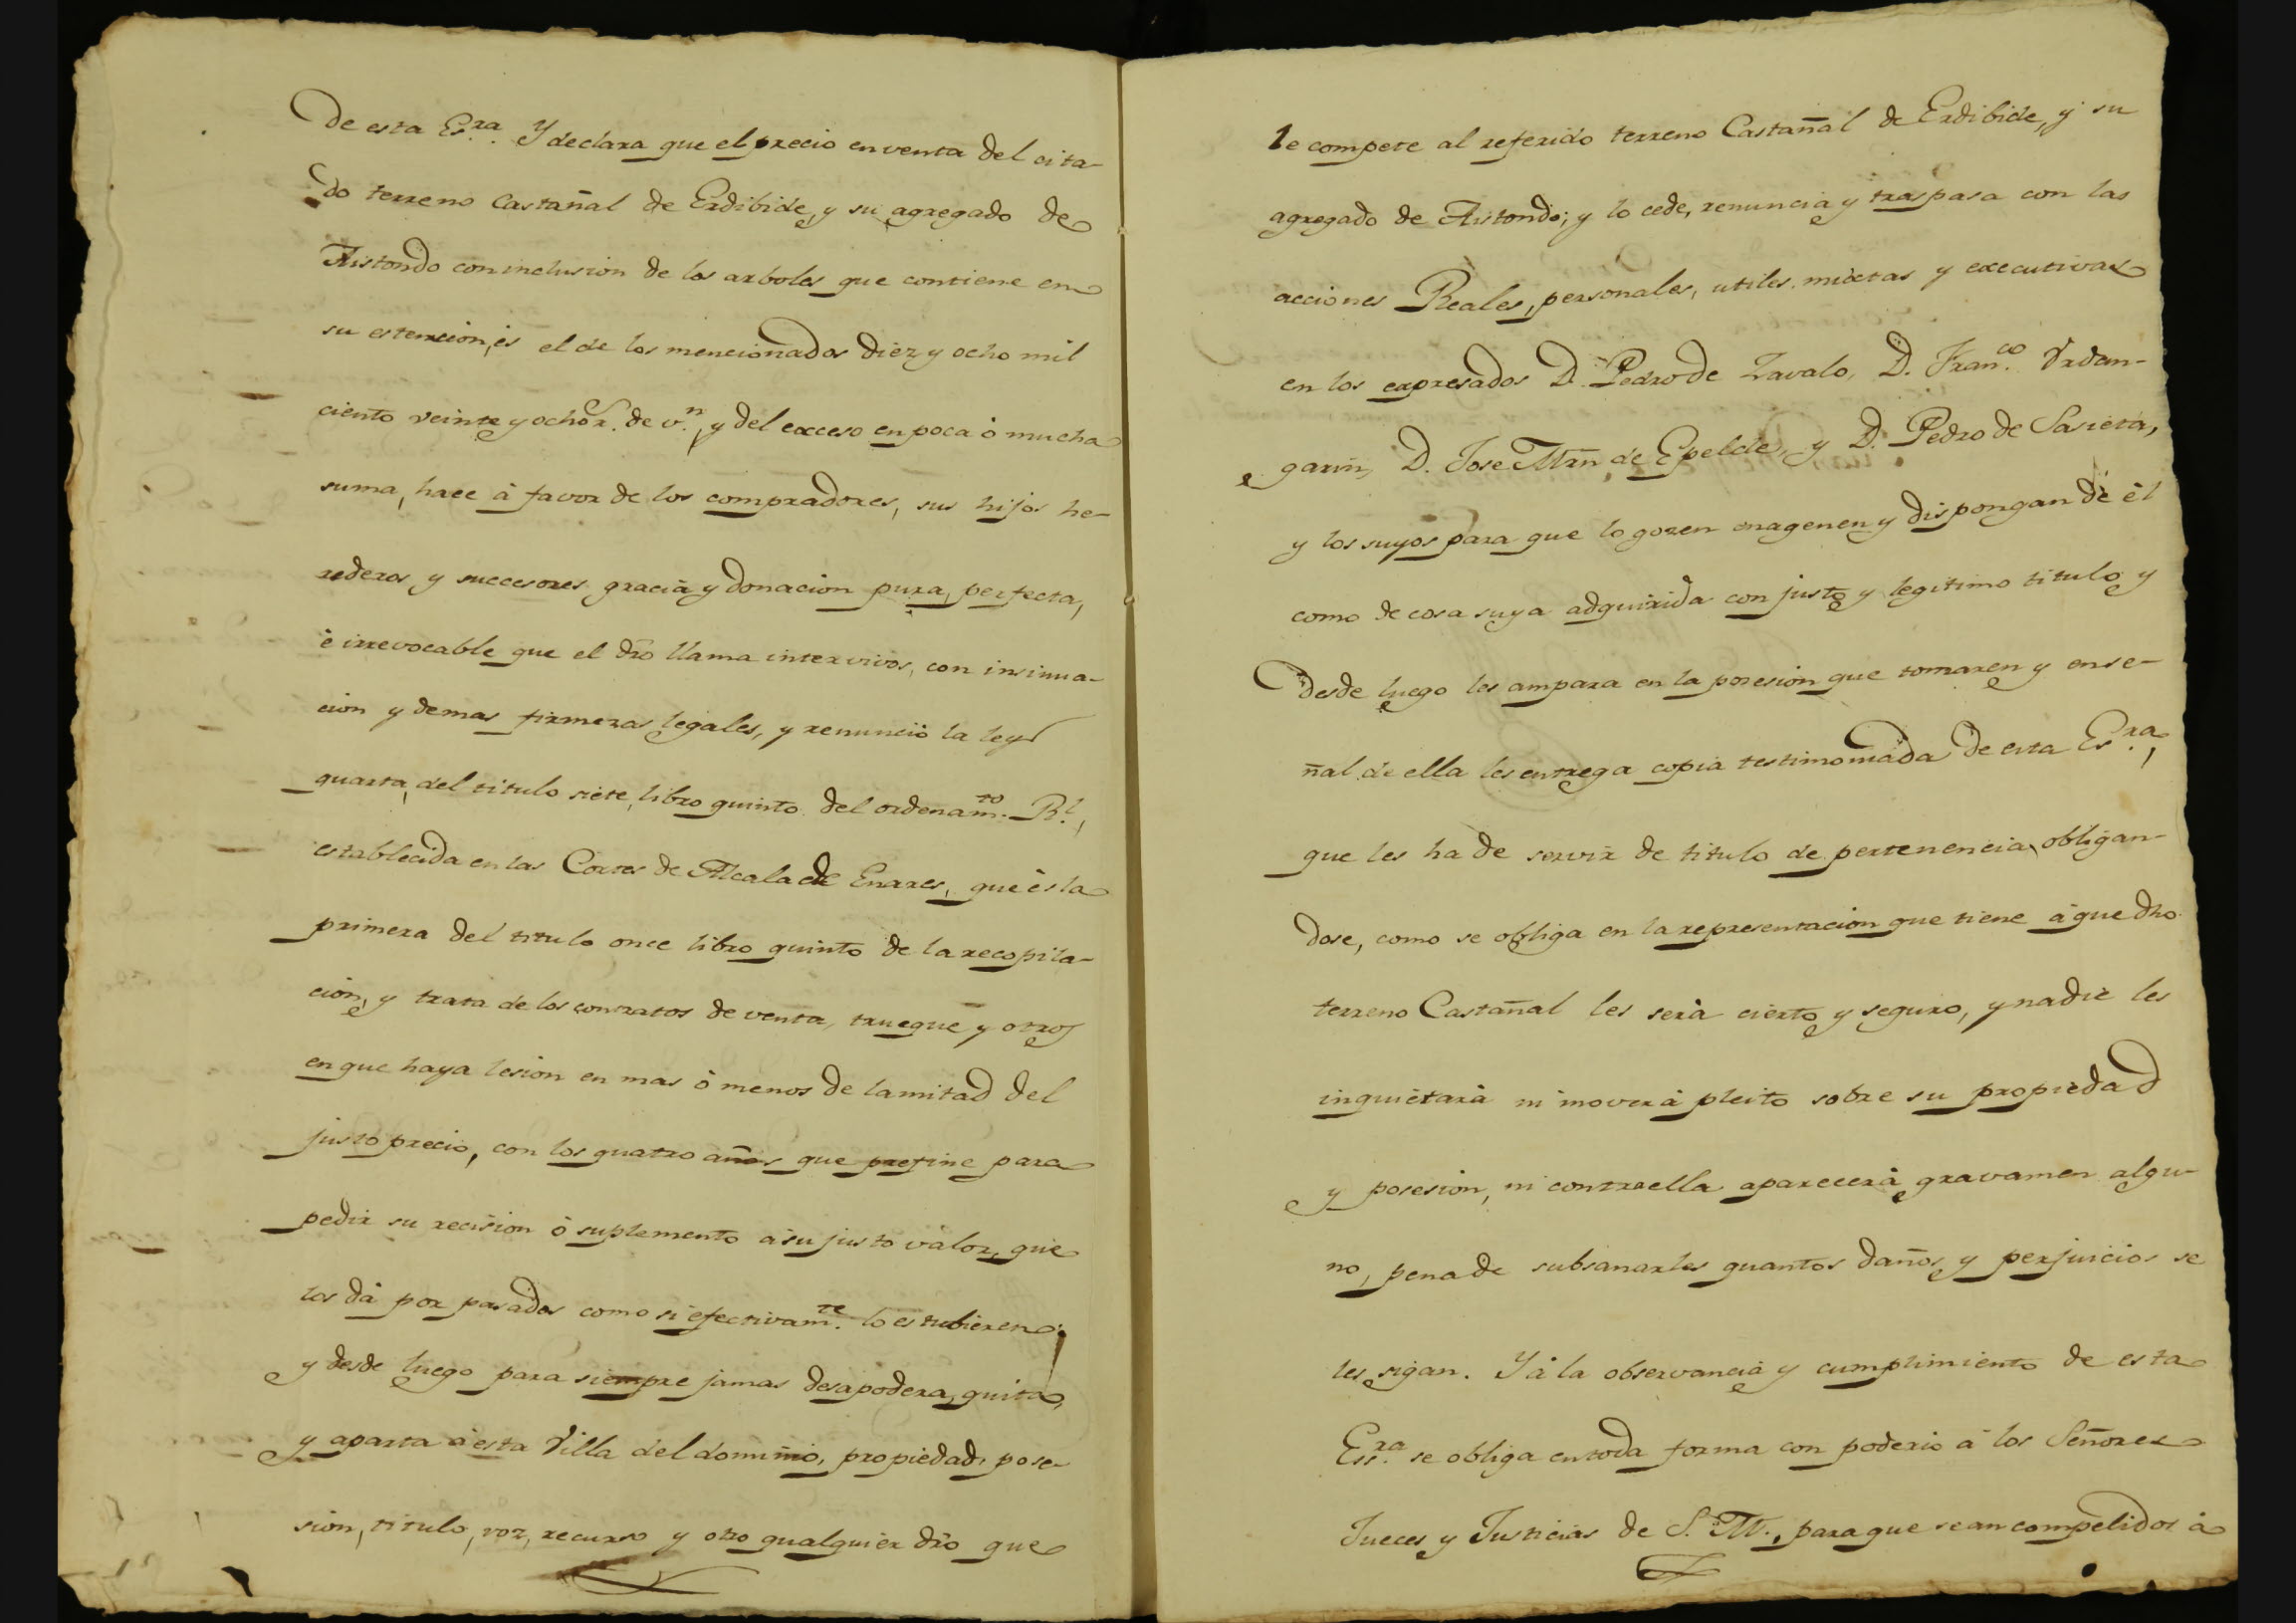 De esta Es.ra Y declara que el precio en venta del cita-
do terreno Castañal de Erdibide, y su agregado de
Aistondo con inclusion de los arboles que contiene en
su estencion, es el de los mencionados diez y ocho mil
ciento veinte y ocho r.s de v.n, y del exceso en poca ò mucha
suma, hace à favor de los compradores, sus hijos he-
rederos y succesores gracia y donacion pura, perfecta,
è irrevocable que el dro llama intervivos, con insinua-
cion y demas firmezas legales, y renunciò la ley
quarta, del titulo siete, libro quinto del ordenam.to R.l,
establecida en las Cortes de Alcala de Enares, que ès la
primera del titulo once libro quinto de la recopila-
cion, y trata de los contratos de venta, trueque y otros
en que haya lesion en mas ò menos de la mitad del
justo precio, con los quatro años que prefine para
pedir su recision ò suplemento à su justo valor, que
los dà por pasados como si efectivam.te lo estubieren;
y desde luego para siempre jamas desapodera, quita,
y aparta à esta Villa del dominio, propiedad, pose-
sion, titulo, voz, recurso y otro qualquier dro que
le compete al referido terreno Castañal de Erdibide, y su
agregado de Aistondo; y lo cede, renuncia y traspasa con las
acciones Reales, personales, utiles, mixtas y executivas
en los expresados D. Pedro de Zavalo, D. Fran.co Urdan-
garin, D. Jose Mrn de Epelde, y D. Pedro de Sasieta,
y los suyos para que lo gozen enagenen y dispongan de èl
como de cosa suya adquirida con justo y legitimo titulo y
desde luego les ampara en la posesion que tomaren y en se-
ñal de ella les entrega copia testimoniada de esta Es.ra,
que les ha de servir de titulo de pertenencia, obligan-
dose, como se obliga en la representacion que tiene à que dho
terreno Castañal les serà cierto y seguro, y nadie les
inquietarà ni moverà pleito sobre su propiedad
y posesion, ni contra ella aparecerà gravamen algu-
no, pena de subsanarles quantos daños y perjuicios se
les sigan. Y à la observancia y cumplimiento de esta
Ess.ra se obliga en toda forma con poderio à los Señores
Jueces y Justicias de S. M., para que sean compelidos à